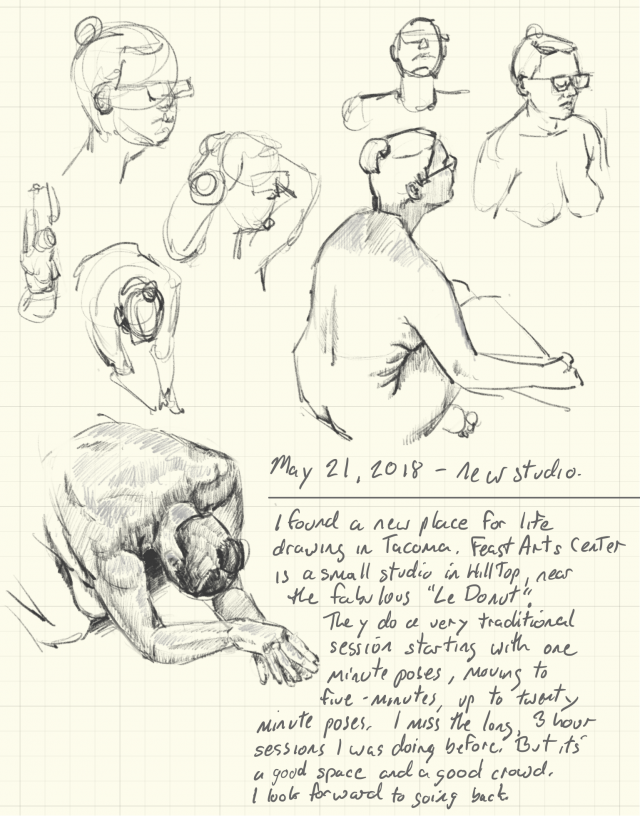 May 21, 2018 - new studio.
I found a new place for life
drawing in Tacoma. Feast Arts Center
is a small studio in HillTop, near
the fabulous "Le Donut".
They do a very traditional
session starting with one
minute poses, moving to
five-minutes, up to twenty
minute poses. I miss the long, 3 hour
sessions I was doing before. But it's
a good space and a good crowd.
I look forward to going back.